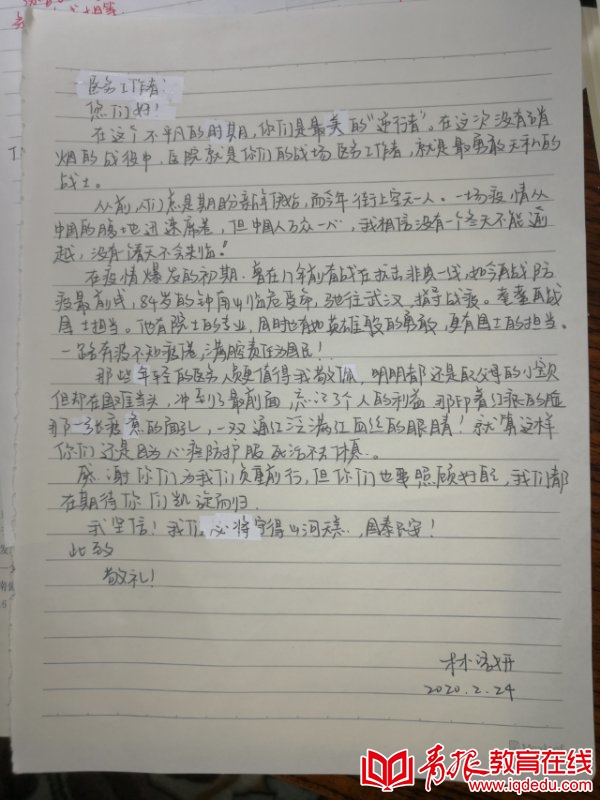 医务工作者：
您们好！
在这个不平凡的时期，你们是最美的“逆行者”。在这次没有硝
烟的战役中，医院就是你们的战场医务工作者，就是最勇敢无私的
战士。
从前，人们总是期盼新年伊始，而今年街上空无一人。一场疫情从
中国的腹地迅速席卷，但中国人万众一心，我相信没有一个冬天不能逾
越，没有春天不会来临！
在疫情爆发的初期，曾在17年前奋战在抗击非典一线，如今再战防
疫最前线，84岁的钟南山临危受命，驰往武汉，指导战疫。耄耋再战
国士担当。他有院士的专业，同时也有如英雄般的勇敢，更有国士的担当。
一路奔波不知疲倦，满腔责任为国民！
那些年轻的医务人员更值得我敬佩，明明都还是父母的小宝贝
但却在国难当头，冲到了最前面，忘记了个人的利益 那印着红痕的脸
那一张疲惫的面孔，一双通红泛满红血丝的眼睛！就算这样
你们还是因为心疼防护服 死活不休息。
感谢你们为我们负重前行，但你们也要照顾好自己，我们都
在期待你们凯旋而归.
我坚信！我们必将守得山河无恙，国泰民安！
此致
敬礼！
2020.2.24
青报教育在线
www.iqdedu.com